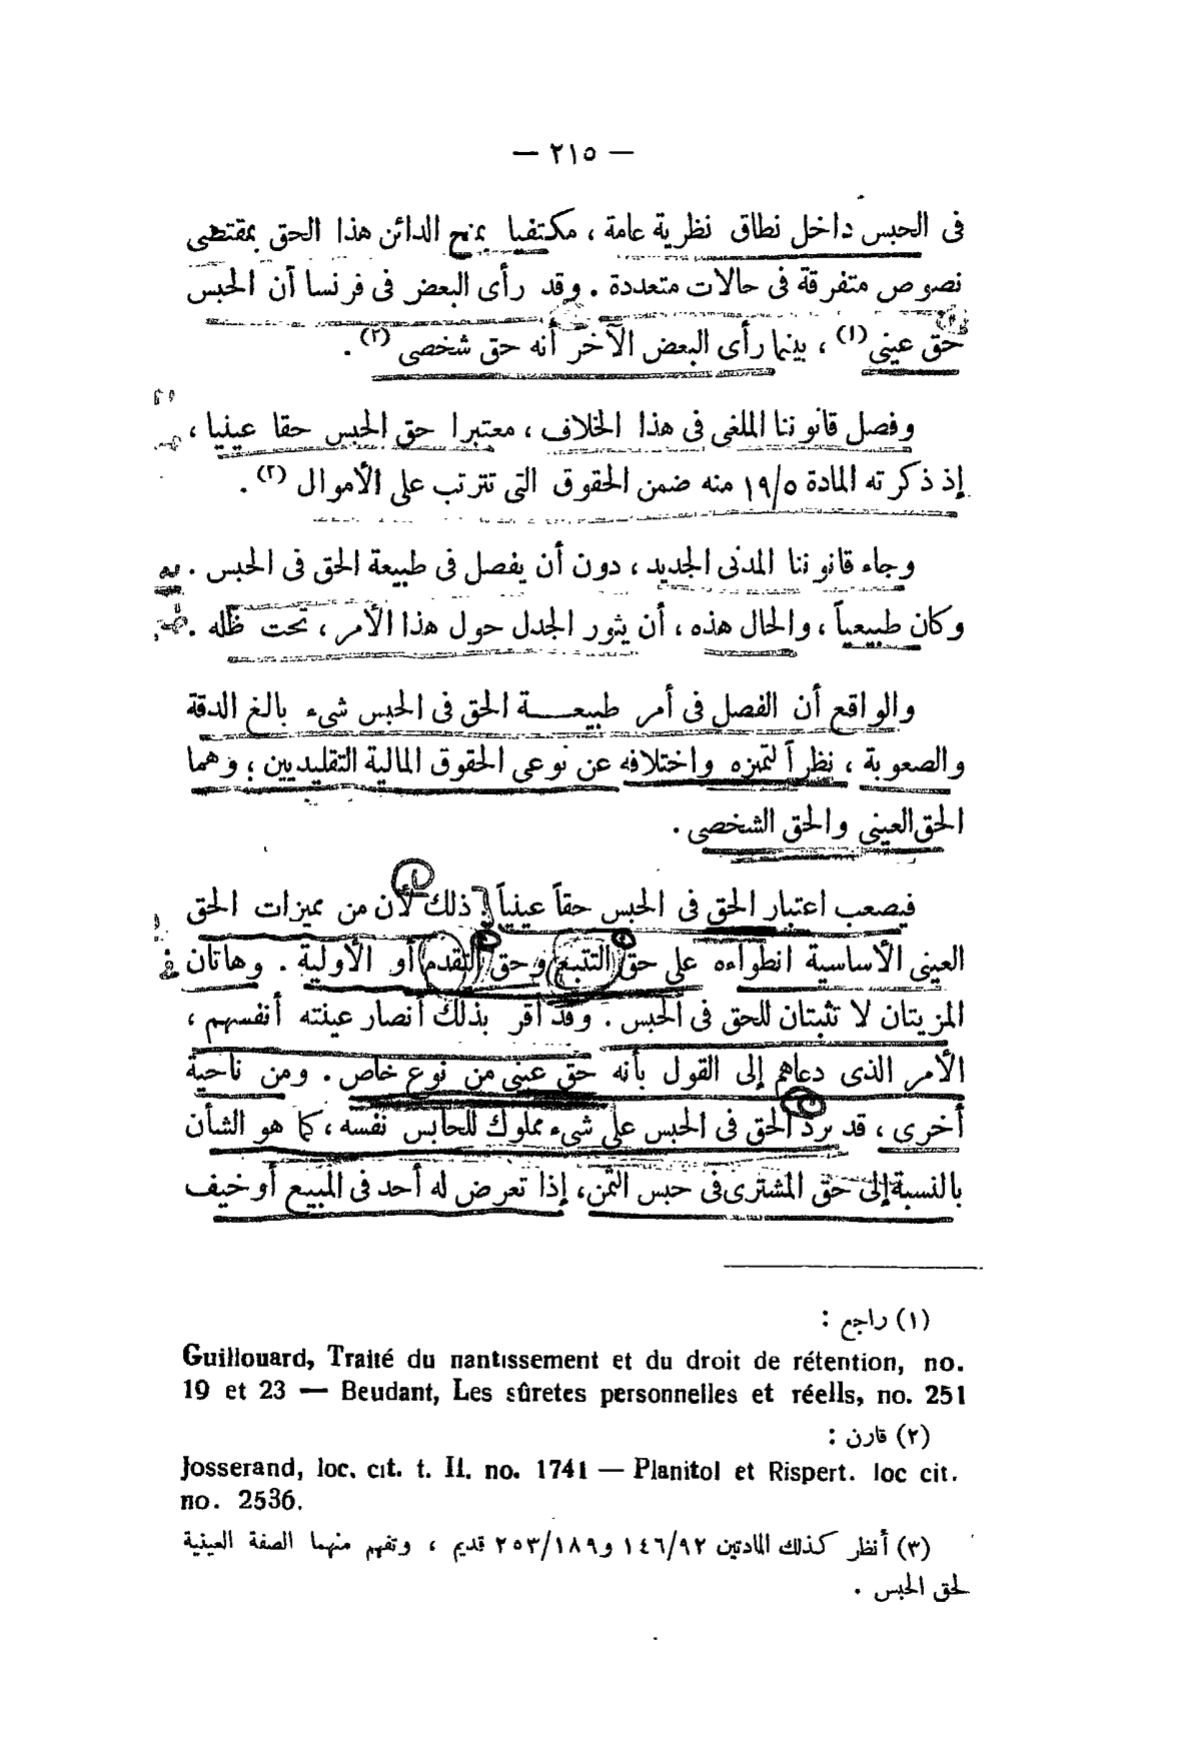 — ٢١٥ —
فى الحبس داخل نطاق نظرية عامة ، مكتفيا بمنح الدائن هذا الحق بمقتضى
نصوص متفرقة فى حالات متعددة . وقد رأى البعض فى فرنسا أن الحبس
حق عينى (١) ، بينما رأى البعض الآخر أنه حق شخصى (٢) .
وفصل قانوننا الملغى فى هذا الخلاف ، معتبرا حق الحبس حقا عينيا ،
إذ ذكرته المادة ١٩/٥ منه ضمن الحقوق التى تترتب على الأموال (٣) .
وجاء قانوننا المدنى الجديد ، دون أن يفصل فى طبيعة الحق فى الحبس .
وكان طبيعياً ، والحال هذه ، أن يثور الجدل حول هذا الأمر ، تحت ظله .
والواقع أن الفصل فى أمر طبيعـــة الحق فى الحبس شىء بالغ الدقة
والصعوبة ، نظراً لتميزه واختلافه عن نوعى الحقوق المالية التقليديين ؛ وهما
الحق العينى والحق الشخصى .
فيصعب اعتبار الحق فى الحبس حقاً عينياً ؛ ذلك لأن من مميزات الحق
العينى الأساسية انطواءه على حق التتبع وحق التقدم أو الأولية . وهاتان
المزيتان لا تثبتان للحق فى الحبس . وقد أقر بذلك أنصار عينته أنفسهم ،
الأمر الذى دعاهم إلى القول بأنه حق عينى من نوع خاص . ومن ناحية
أخرى ، قد يرد الحق فى الحبس على شىء مملوك للحابس نفسه ، كما هو الشأن
بالنسبة إلى حق المشترى فى حبس الثمن ، إذا تعرض له أحد فى المبيع أو خيف
(١) راجع :
Guillouard, Traité du nantissement et du droit de rétention, no.
19 et 23 — Beudant, Les sûretes personnelles et réells, no. 251
(٢) قارن :
Josserand, loc. cit. t. II. no. 1741 — Planitol et Rispert. loc cit.
no. 2536.
(٣) أنظر كذلك المادتين ١٤٦/٩٢ و٢٥٣/١٨٩ قديم ، وتفهم منهما الصفة العينية
لحق الحبس .